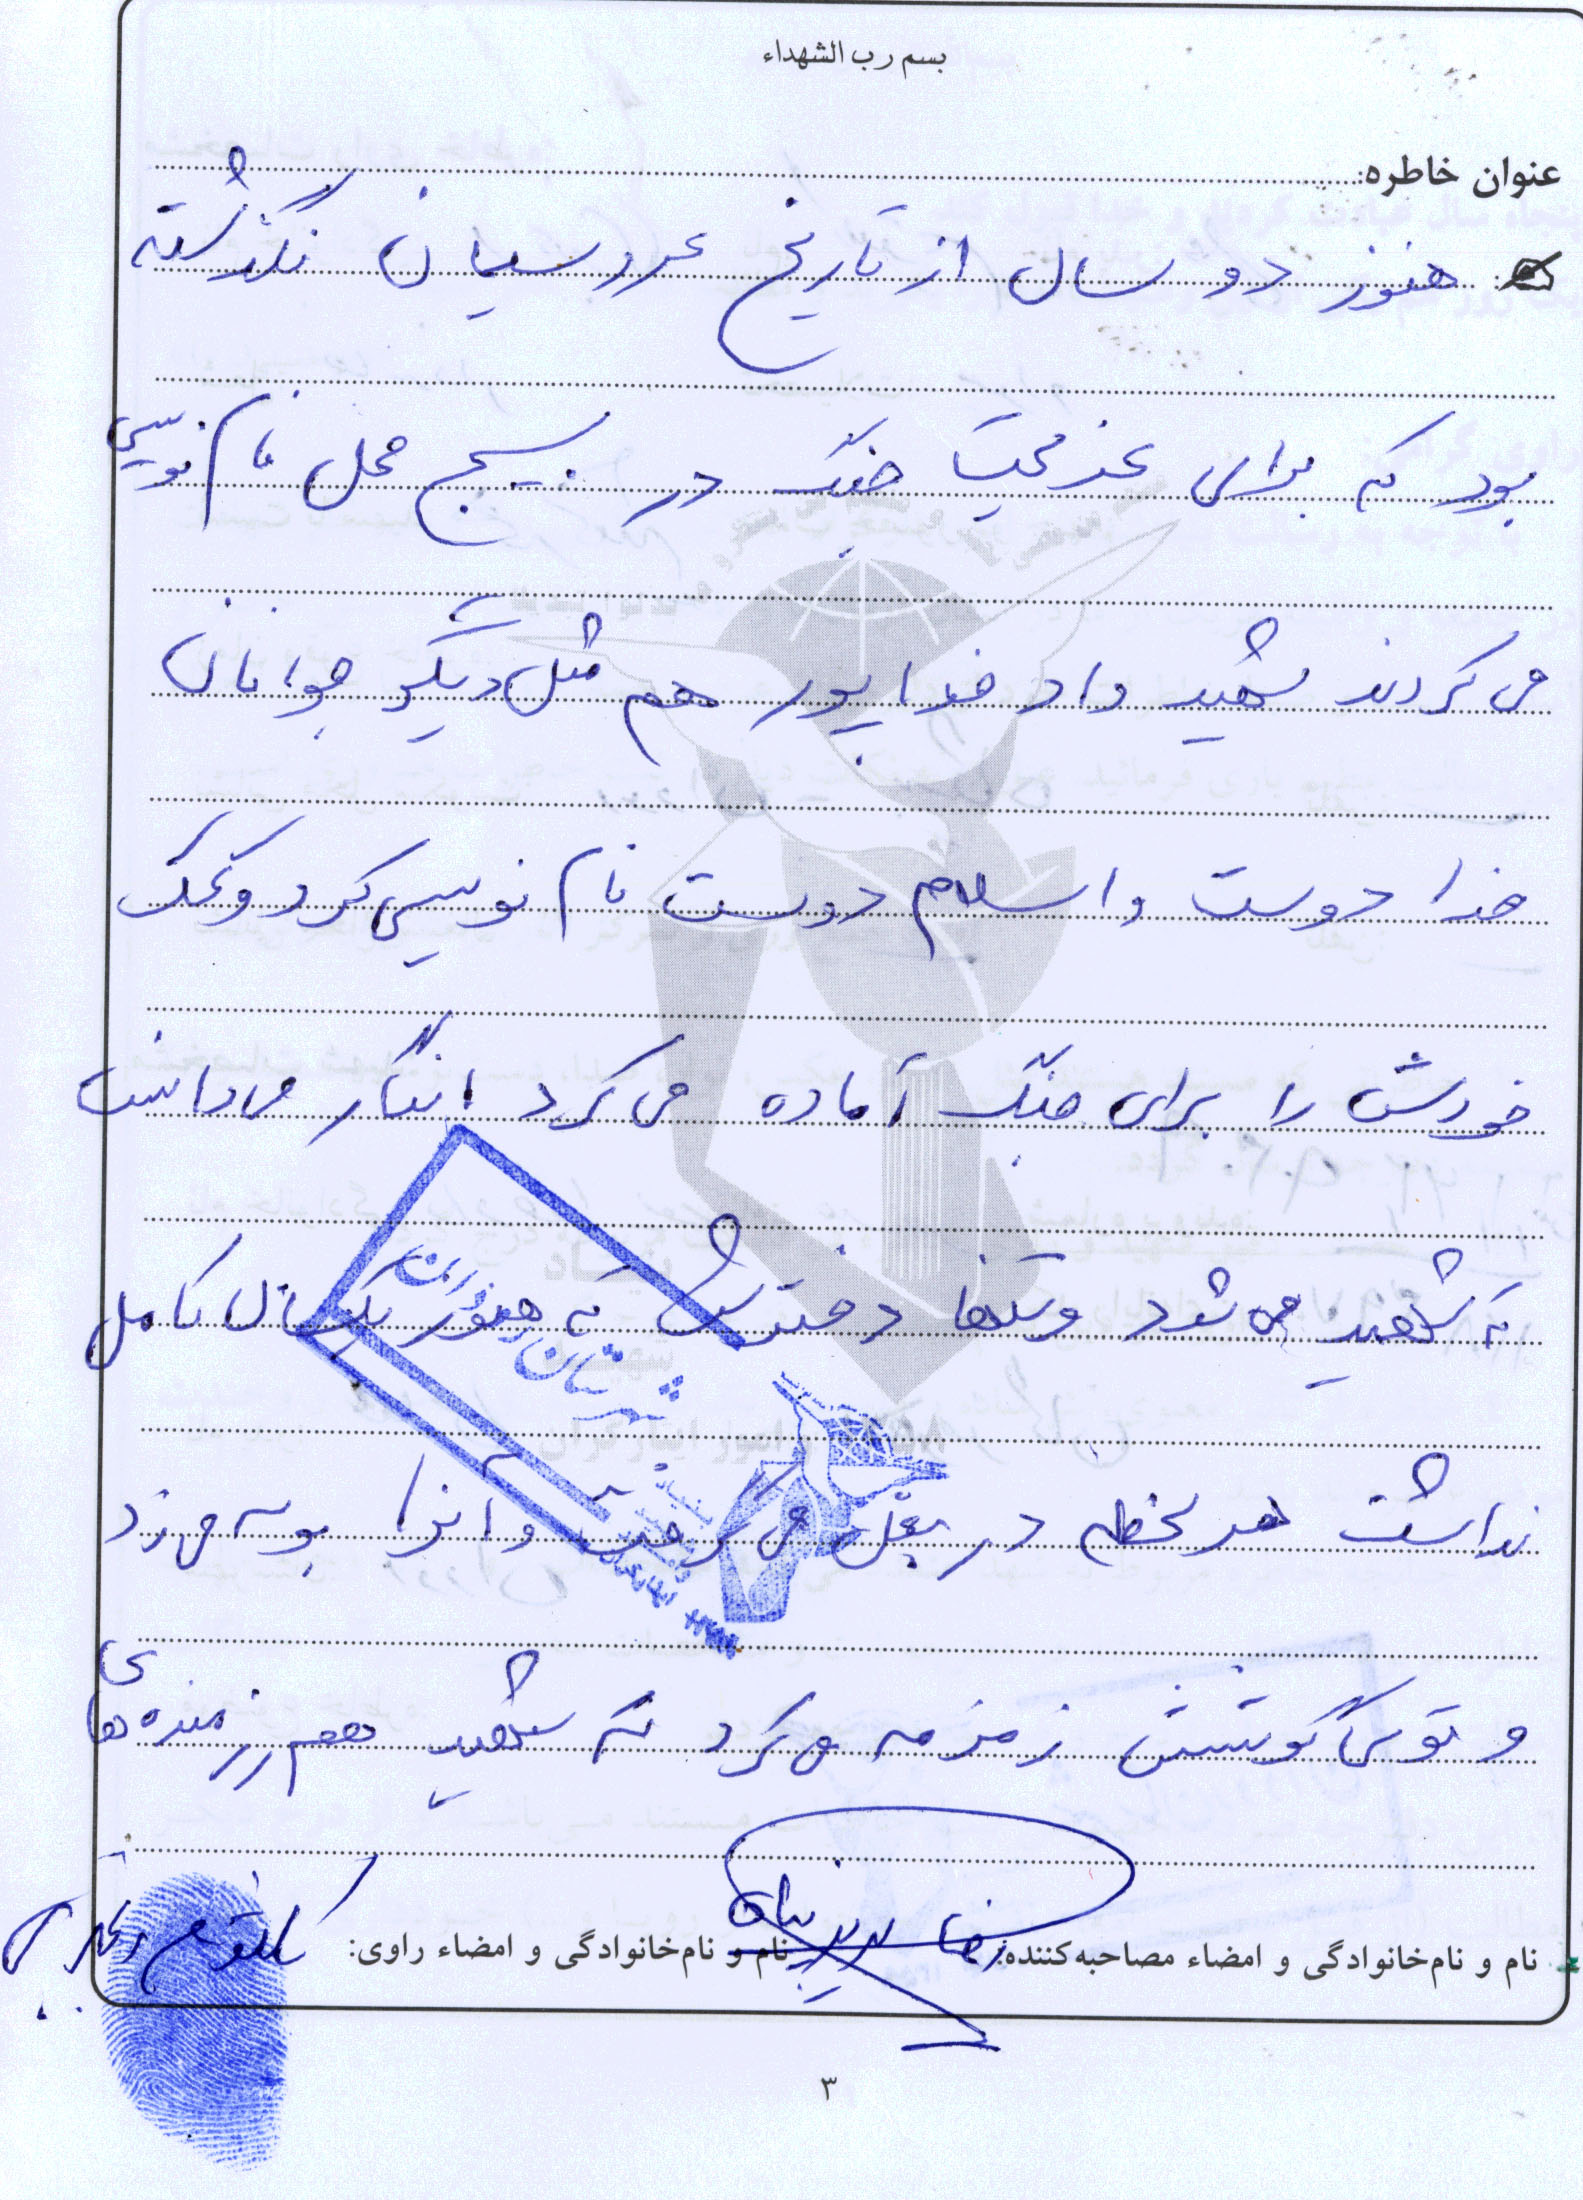 بسم رب الشهداء
عنوان خاطره:
هنوز دو سال از تاریخ عروسیمان نگذشته
بود که برای عزمیت جنگ در بسیج محل نام نویسی
می کردند شهید داد خدا پور هم مثل دیگر جوانان
خدا دوست و اسلام دوست نام نویسی کرد و
خودش را برای جنگ آماده می کرد انگار می دانست
که شهید می شود و تنها دخترش که هنوز یکسال کامل
نداشت هر لحظه در بغل می گرفت و آنرا بوسه می زد
و توی گوشش زمزمه می کرد که شهید هم رزمنده های
نام و نام‌خانوادگی و امضاء مصاحبه‌کننده: رضا نام و نام‌خانوادگی و امضاء راوی: کلثوم
شهرستان
۳